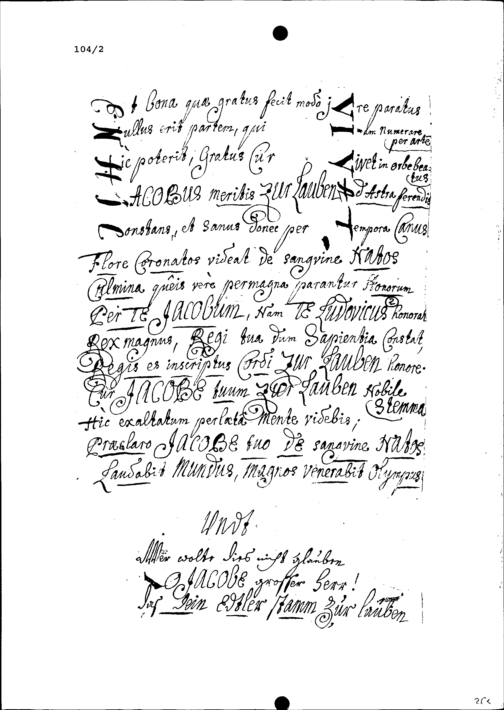 104/2
Et Bona quæ gratus fecit modo jVre paratus
Nullus erit partem, qui Vim Numerare per arte
Hic poterit, Gratus Cur Vivet in orbe beatus
JACOBUS meritis Zur Lauben Ad Astra ferendis
Constans, et Sanus Donec per Tempora Canus.
Flore Coronatos videat de sangvine Natos
Culmina queis verè permagna parantur Honorum
Per TE JACOBUM, Nam TE Ludovicus honorat
Rex magnus, Regi tua dum Sapientia Constat,
Regis es inscriptus Cordi Zur Lauben honore.
Cur JACOBE tuum Zur Lauben Nobile Stemma
Hic exaltatum perlatâ Mente videbis;
Præclaro JACOBE tuo DE sangvine Natos
Laudabit Mundus, magnos venerabit Olympus
Undt.
Wer wolte dies nicht glauben
O JACOBE grosser Herr!
Das Dein Edtler stamm Zur lauben